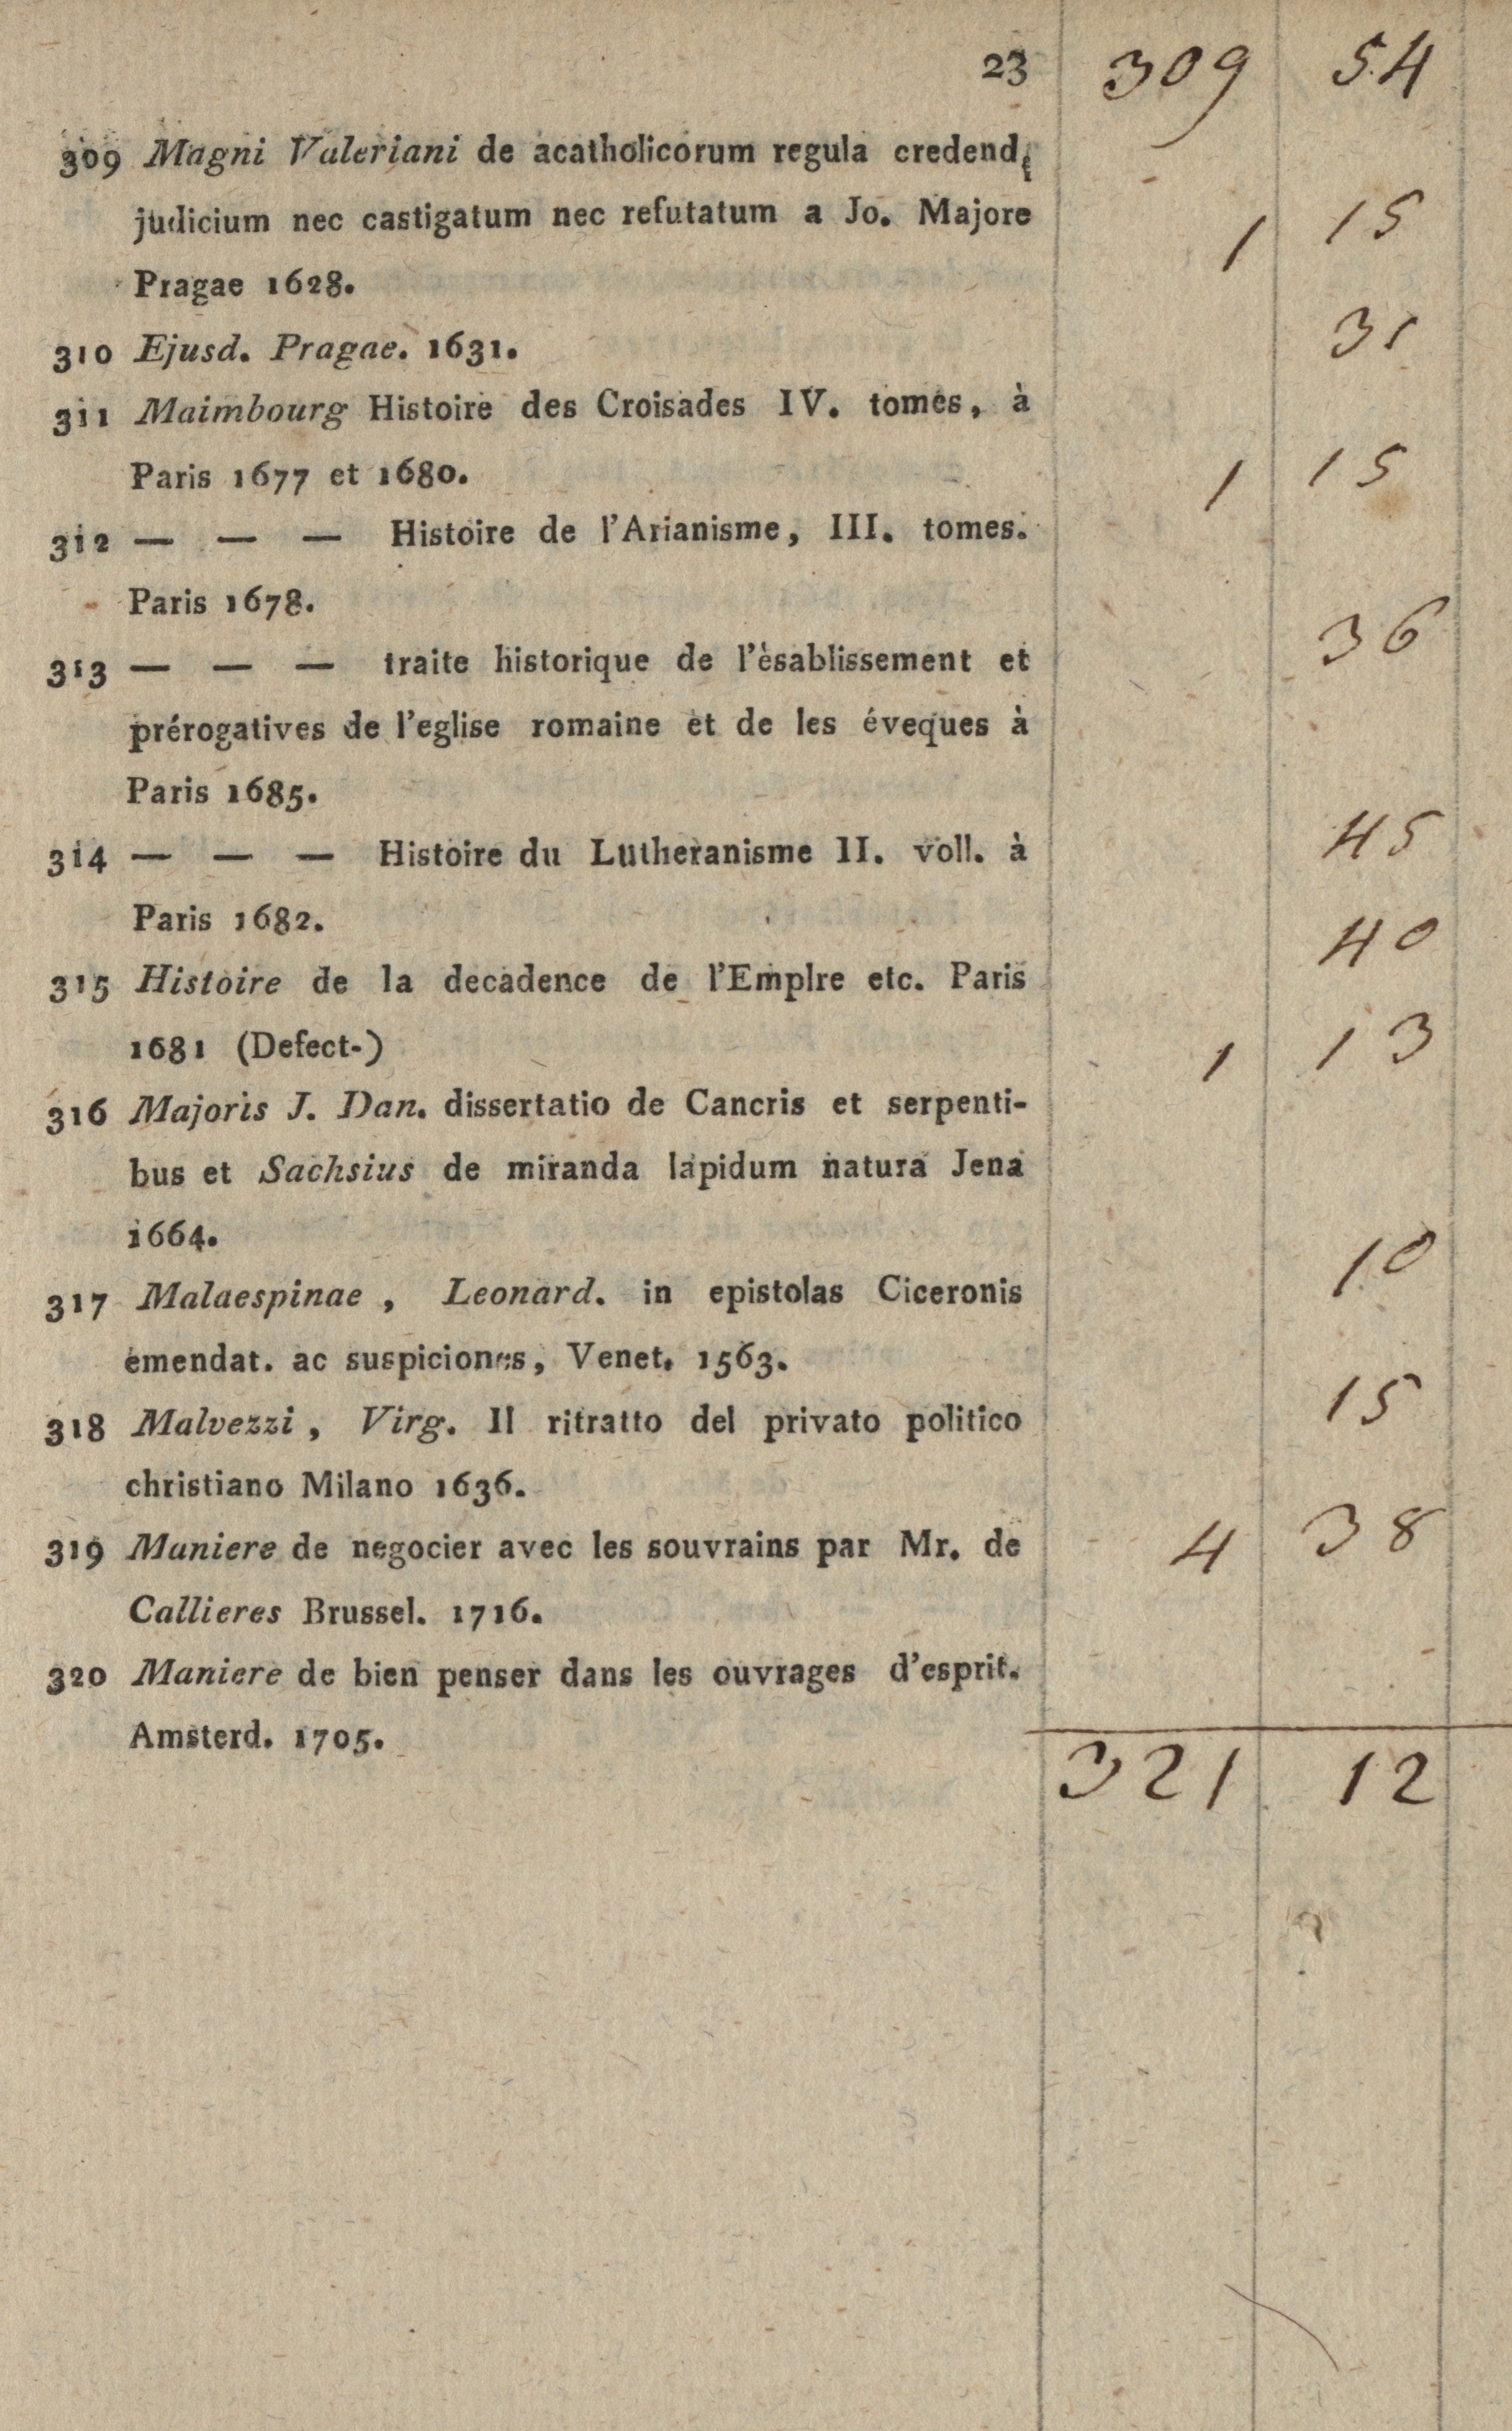 23 309 54
309 Magni Valeriani de acatholicorum regula credendi
judicium nec castigatum nec refutatum a Jo. Majore 1 15
Pragae 1628.
310 Ejusd. Pragae. 1631. 31
311 Maimbourg Histoire des Croisades IV. tomes, à
Paris 1677 et 1680. 1 15
312 — — — Histoire de l'Arianisme, III. tomes.
Paris 1678. 36
313 — — — traite historique de l'èsablissement et
prérogatives de l'eglise romaine et de les éveques à
Paris 1685.
314 — — — Histoire du Lutheranisme II. voll. à 45
Paris 1682. 40
315 Histoire de la decadence de l'Emplre etc. Paris
1681 (Defect-) 1 13
316 Majoris J. Dan. dissertatio de Cancris et serpenti-
bus et Sachsius de miranda lapidum natura Jena
1664. 10
317 Malaespinae , Leonard. in epistolas Ciceronis
emendat. ac suspiciones, Venet. 1563.
318 Malvezzi , Virg. Il ritratto del privato politico 15
christiano Milano 1636.
319 Maniere de negocier avec les souvrains par Mr. de 4 38
Callieres Brussel. 1716.
320 Maniere de bien penser dans les ouvrages d'esprit.
Amsterd. 1705.
321 12